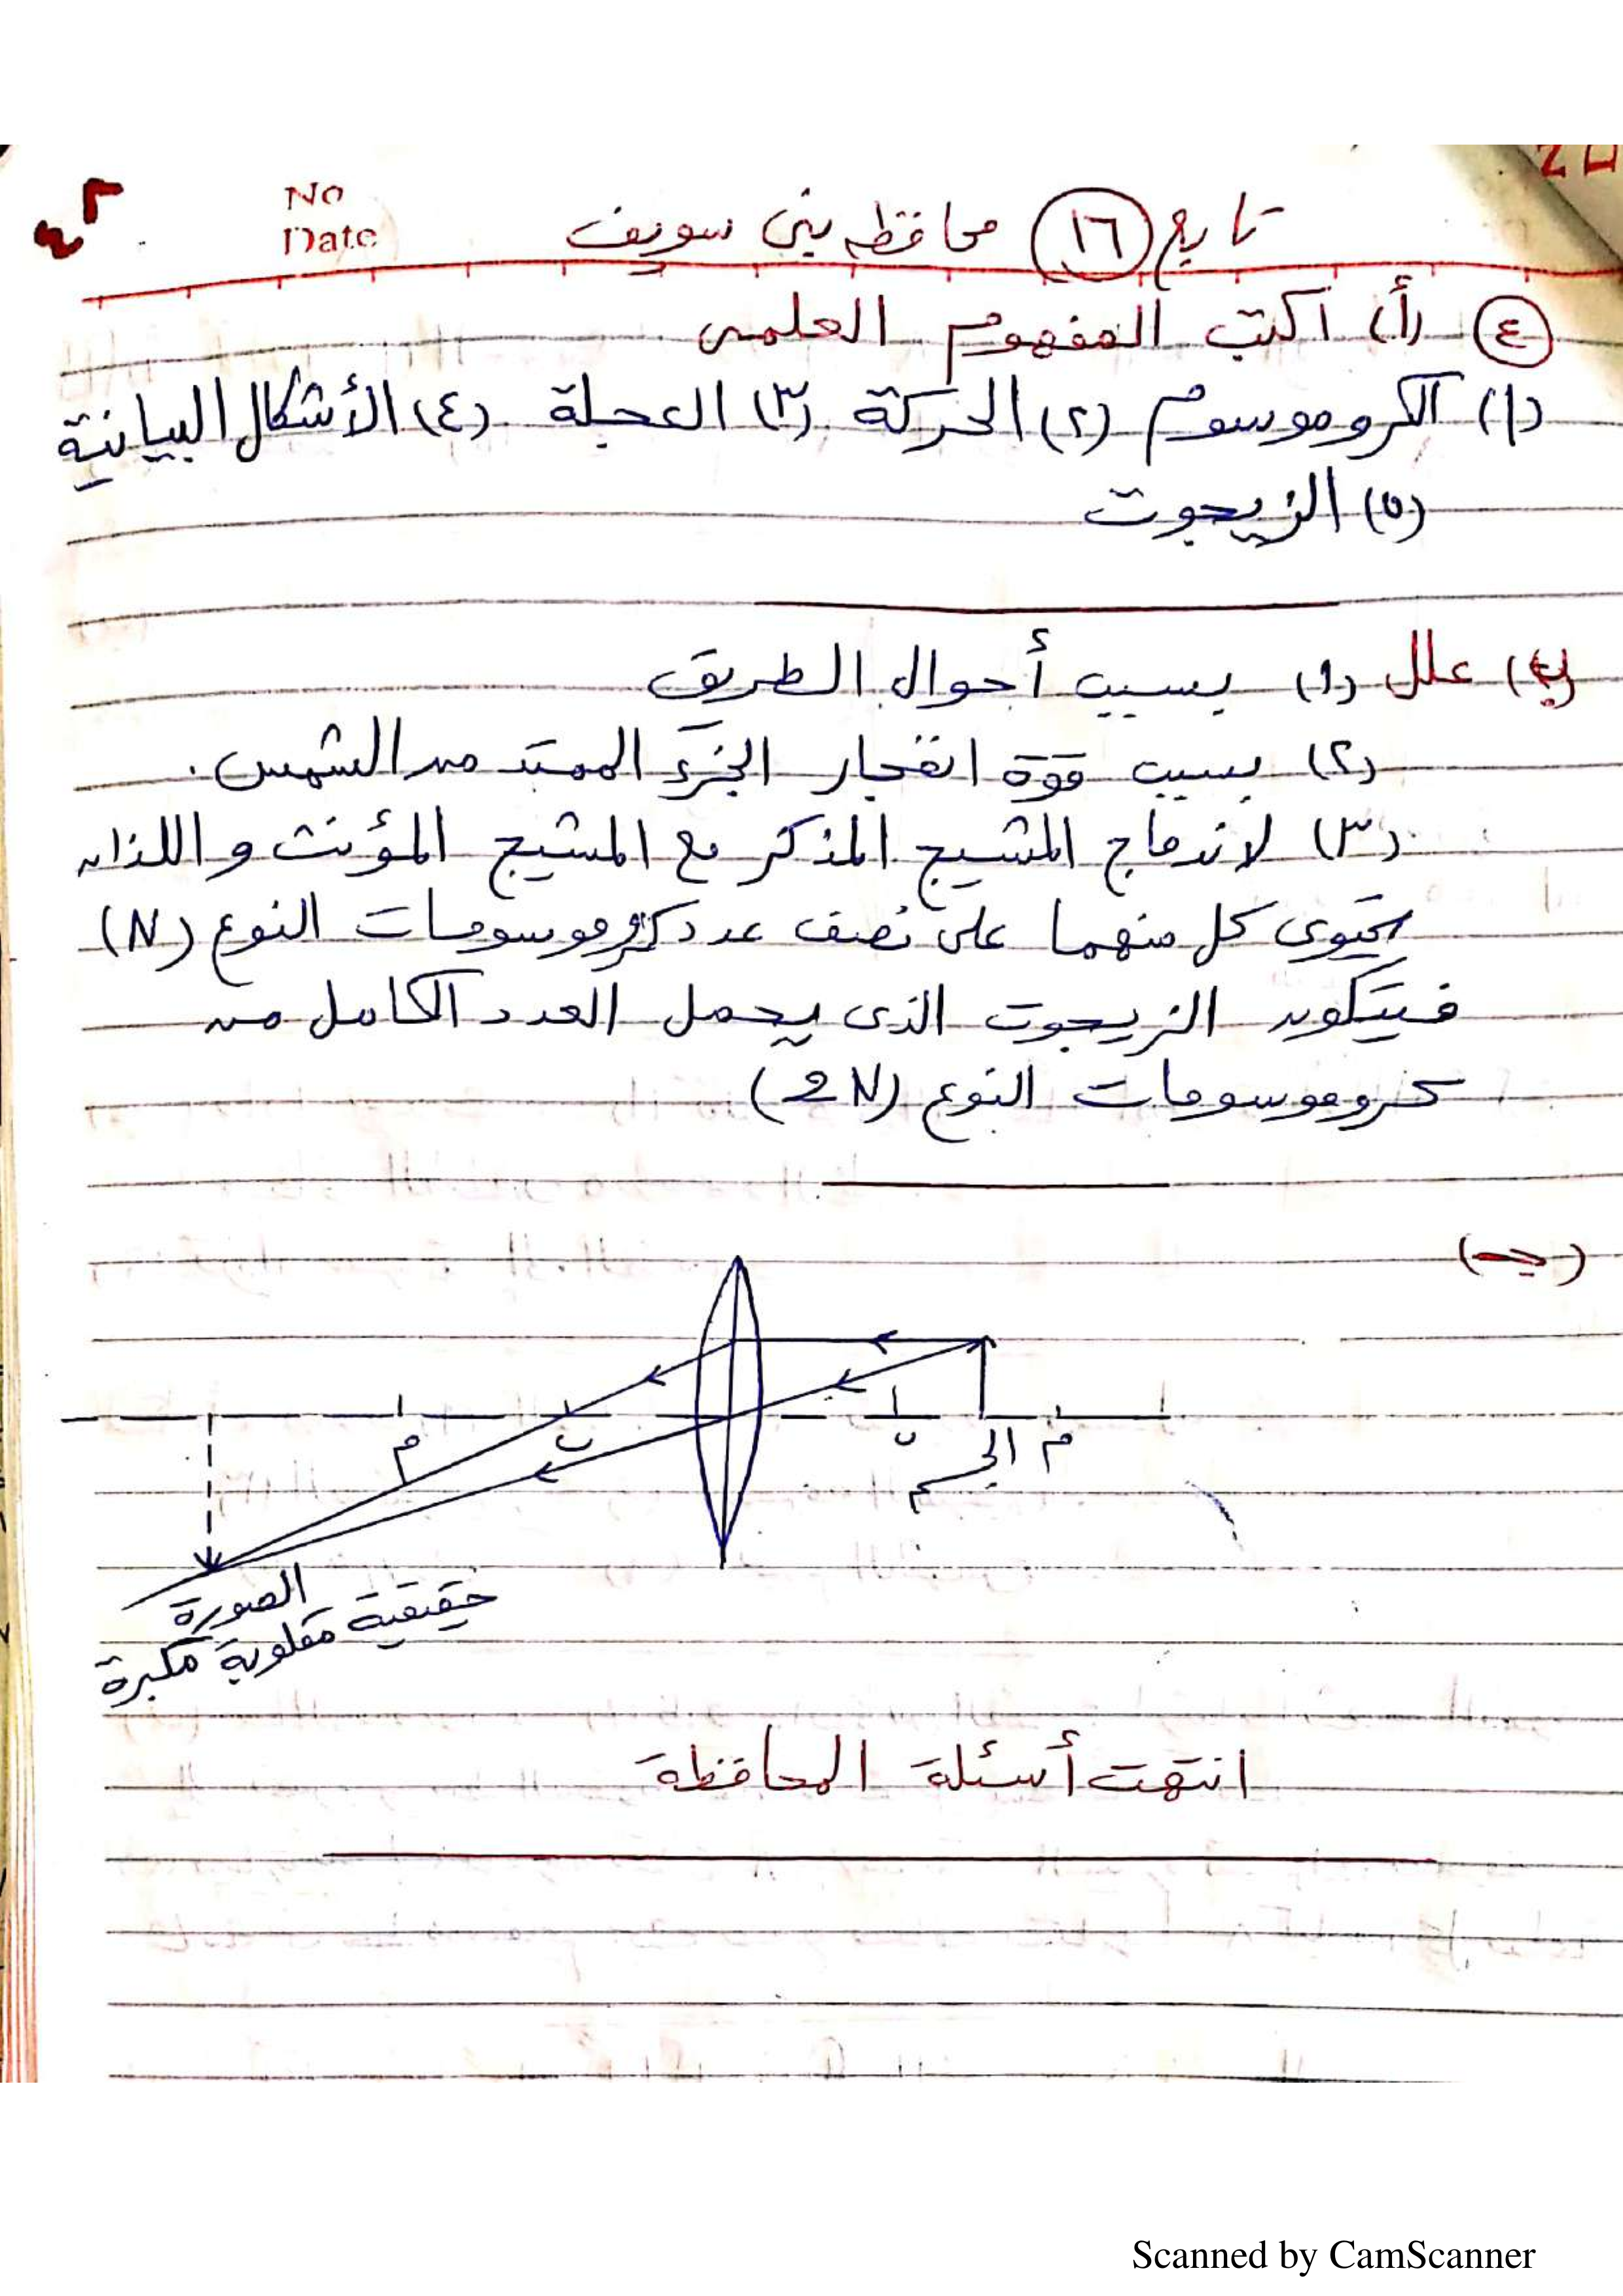 No
Date
تابع (١٦) محافظه بنى سويف
(٤) (أ) اكتب المفهوم العلمى
(١) الكروموسوم (٢) الحركة (٣) العجلة (٤) الأشكال البيانية
(٥) الزيجوت
(ب) علل (١) بسبب أحوال الطريق
(٢) بسبب قوة انفجار الجزء الممتد من الشمس.
(٣) لاندماج المشيج المذكر مع المشيج المؤنث واللذان
يحتوى كل منهما على نصف عدد كروموسومات النوع (N)
فيتكون الزيجوت الذى يحمل العدد الكامل من
كروموسومات النوع (2N)
(جـ)
م ب ب الجسم م
الصورة
حقيقية مقلوبة مكبرة
انتهت أسئلة المحافظة
Scanned by CamScanner